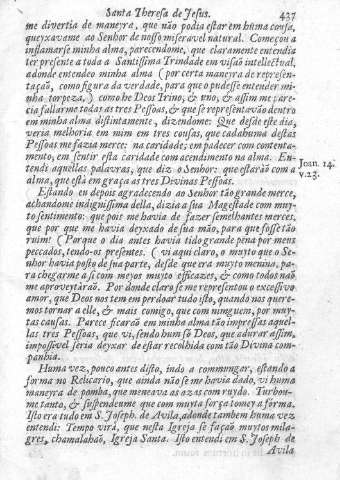 Santa Theresa de Jesus. 437
me divertia de maneyra, que não podia estar em huma cousa,
queyxavame ao Senhor de nosso miseravel natural. Começou a
inflamarse minha alma, parecendome, que claramente entendia
ter presente a toda a Santissima Trindade em visaõ intellectual,
adonde entendeo minha alma (por certa maneyra de represen-
tação, como figura da verdade, para que o pudesse entender mi-
nha torpeza,) como he Deos Trino, & uno, & assim me pare-
cia fallarme todas as tres Pessoas, & que se representavão dentro
em minha alma distintamente, dizendome: Que desde este dia,
veria melhoria em mim em tres cousas, que cada huma destas
Pessoas me fazia merce: na caridade; em padecer com contenta-
mento, em sentir esta caridade com acendimento na alma. En-
tendi aquellas palavras, que diz o Senhor: que estarão com a
alma, que està em graça as tres Divinas Pessoas.
Joan. 14.
v. 23.
Estando eu depois agradecendo ao Senhor tão grande merce,
achandome indignissima della, dizia a sua Magestade com muy-
to sentimento: que pois me havia de fazer semelhantes merces,
que por que me havia deyxado de sua mão, para que fosse tão
ruim? (Porque o dia antes havia tido grande pena por meus
peccados, tendo-os presentes. (vi aqui claro, o muyto que o Se-
nhor havia posto de sua parte, desde que era muyto menina, pa-
ra chegarme a si com meyos muyto efficazes, & como todos não
me aproveytàraõ. Por donde claro se me representou o excessivo
amor, que Deos nos tem em perdoar tudo isto, quando nos quere-
mos tornar a elle, & mais comigo, que com ninguem, por muy-
tas causas. Parece ficaraõ em minha alma tão impressas aquel-
las tres Pessoas, que vi, sendo hum só Deos, que a durar assim,
impossivel seria deyxar de estar recolhida com tão Divina com-
panhia.
Huma vez, pouco antes disto, indo a commungar, estando a
forma no Relicario, que ainda não se me havia dado, vi huma
maneyra de pomba, que meneava as azas com ruydo. Turbou-
me tanto, & suspendeume que com muyta força tomey a fórma.
Isto era tudo em S. Joseph. de Avila, adonde tambem huma vez
entendi: Tempo virà, que nesta Igreja se façaõ muytos mila-
gres, chamalahaõ, Igreja Santa. Isto entendi em S. Joseph de
Avila